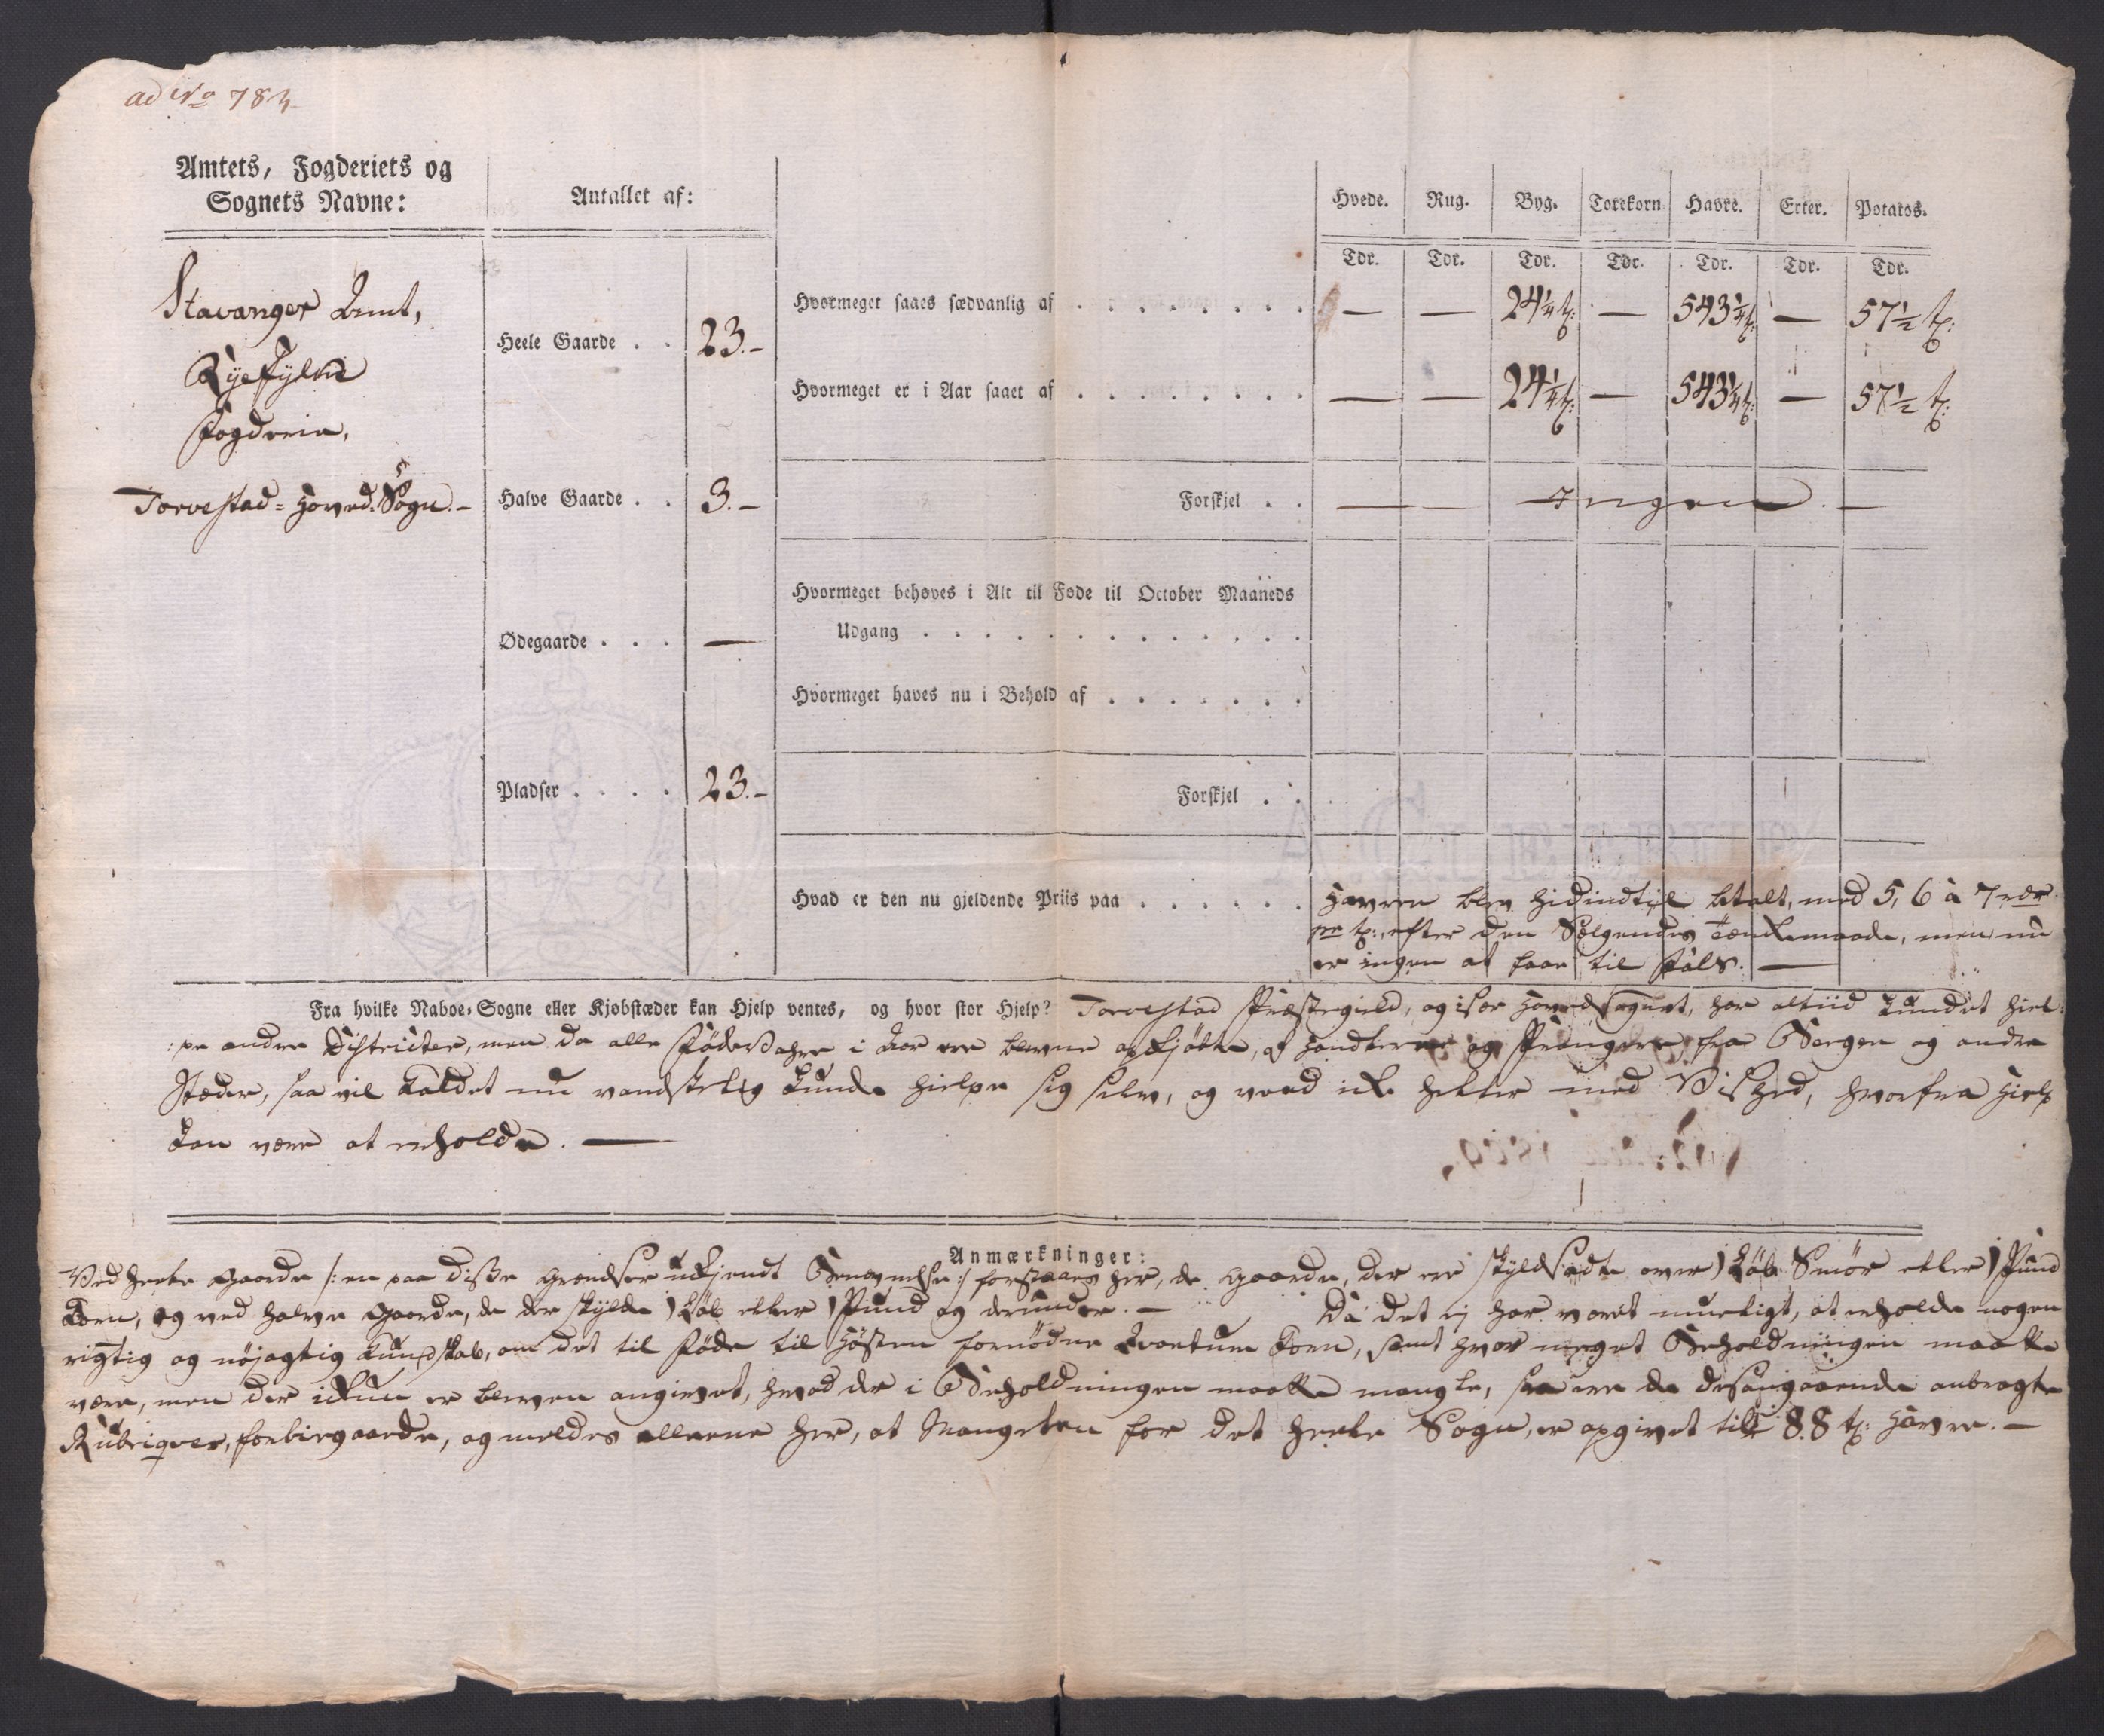 ad No 784
Amtets, Fogderiets og
Sognets Navne:
Antallet af:
Hvede. Rug. Byg. Torekorn Havre. Erter. Potatos.
Tdr. Tdr. Tdr. Tdr. Tdr. Tdr. Tdr.
Stavanger Amt,
Ryefylke
Fogderie,
Torvestad-Hoved-Sogn. —
Heele Gaarde . . 23. —
Halve Gaarde . . 3. —
Ødegaarde . . . —
Pladser . . . . 23. —
Hvormeget saaes sædvanlig af . . . . . . . . — — 24¼ t: — 543¼ t: — 57½ t:
Hvormeget er i Aar saaet af . . . . . . . . — — 24¼ t: — 543¼ t: — 57½ t:
Forskjel . . — — Ingen. —
Hvormeget behøves i Alt til Føde til October Maaneds
Udgang . . . . . . . . . . . . .
Hvormeget haves nu i Behold af . . . . . . .
Forskjel . .
Hvad er den nu gjeldende Priis paa . . . . . . Havren blev hidindtil betalt, med 5, 6 à 7 rdr
pr t:, efter den Sælgendes Tænkemaade, men nu
er ingen at faae til fals. —
Fra hvilke Naboe-Sogne eller Kjøbstæder kan Hjelp ventes, og hvor stor Hjelp? Torvestad Præstegield, og især Hovedsognet, har altiid kundet hiel-
:pe andre Districter, men da alle Fødevahre i Aar ere blevne opkjøbte, af Handlere og Prangere fra Bergen og andre
Stæder, saa vil Kaldet nu vandskelig kunde hielpe sig selv, og veed ikke heller med Vished, hvorfra Hielp
kan være at erholde. —
Anmærkninger:
Ved heele Gaarde /: en paa disse Grændser ukjendt Benævnelse :/ forstaaes her, de Gaarde, der ere skyldsadte over 1 Løb Smör eller 1 Pund
Korn, og ved halve Gaarde, de der skylde 1 Løb eller 1 Pund og derunder. — Da det ej har været mueligt, at erholde nogen
rigtig og nöjagtig Kundskab, om det til Føde til Høsten fornødne Qvantum Korn, samt hvor meget Beholdningen maatte
være, men der ikkun er bleven angivet, hvad der i Beholdningen maatte mangle, saa ere de desangaaende anbragte
Rubriqver, forbiegaaede, og meldes alleene her, at Mangelen for det heele Sogn, er opgivet til 88 t: Havre. —